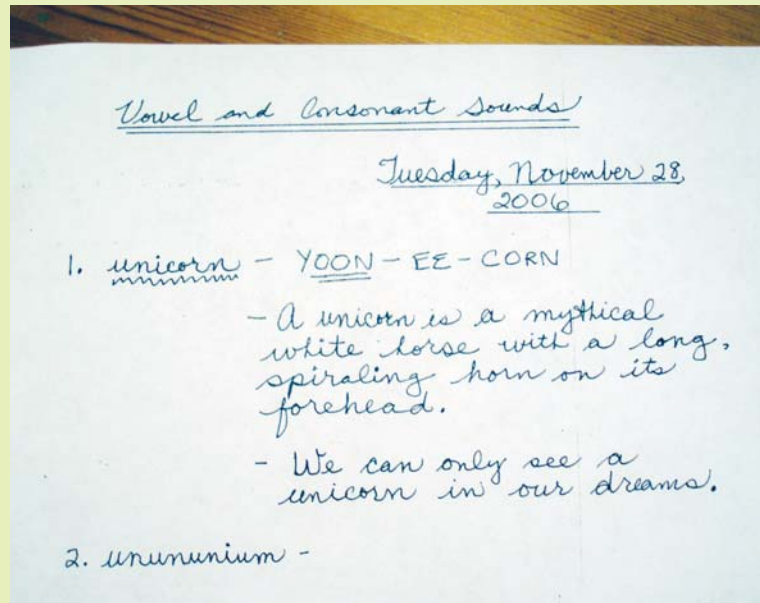 Vowel and Consonant Sounds
Tuesday, November 28,
2006
1. unicorn - YOON-EE-CORN
- A unicorn is a mythical
white horse with a long,
spiraling horn on its
forehead.
- We can only see a
unicorn in our dreams.
2. unununium -